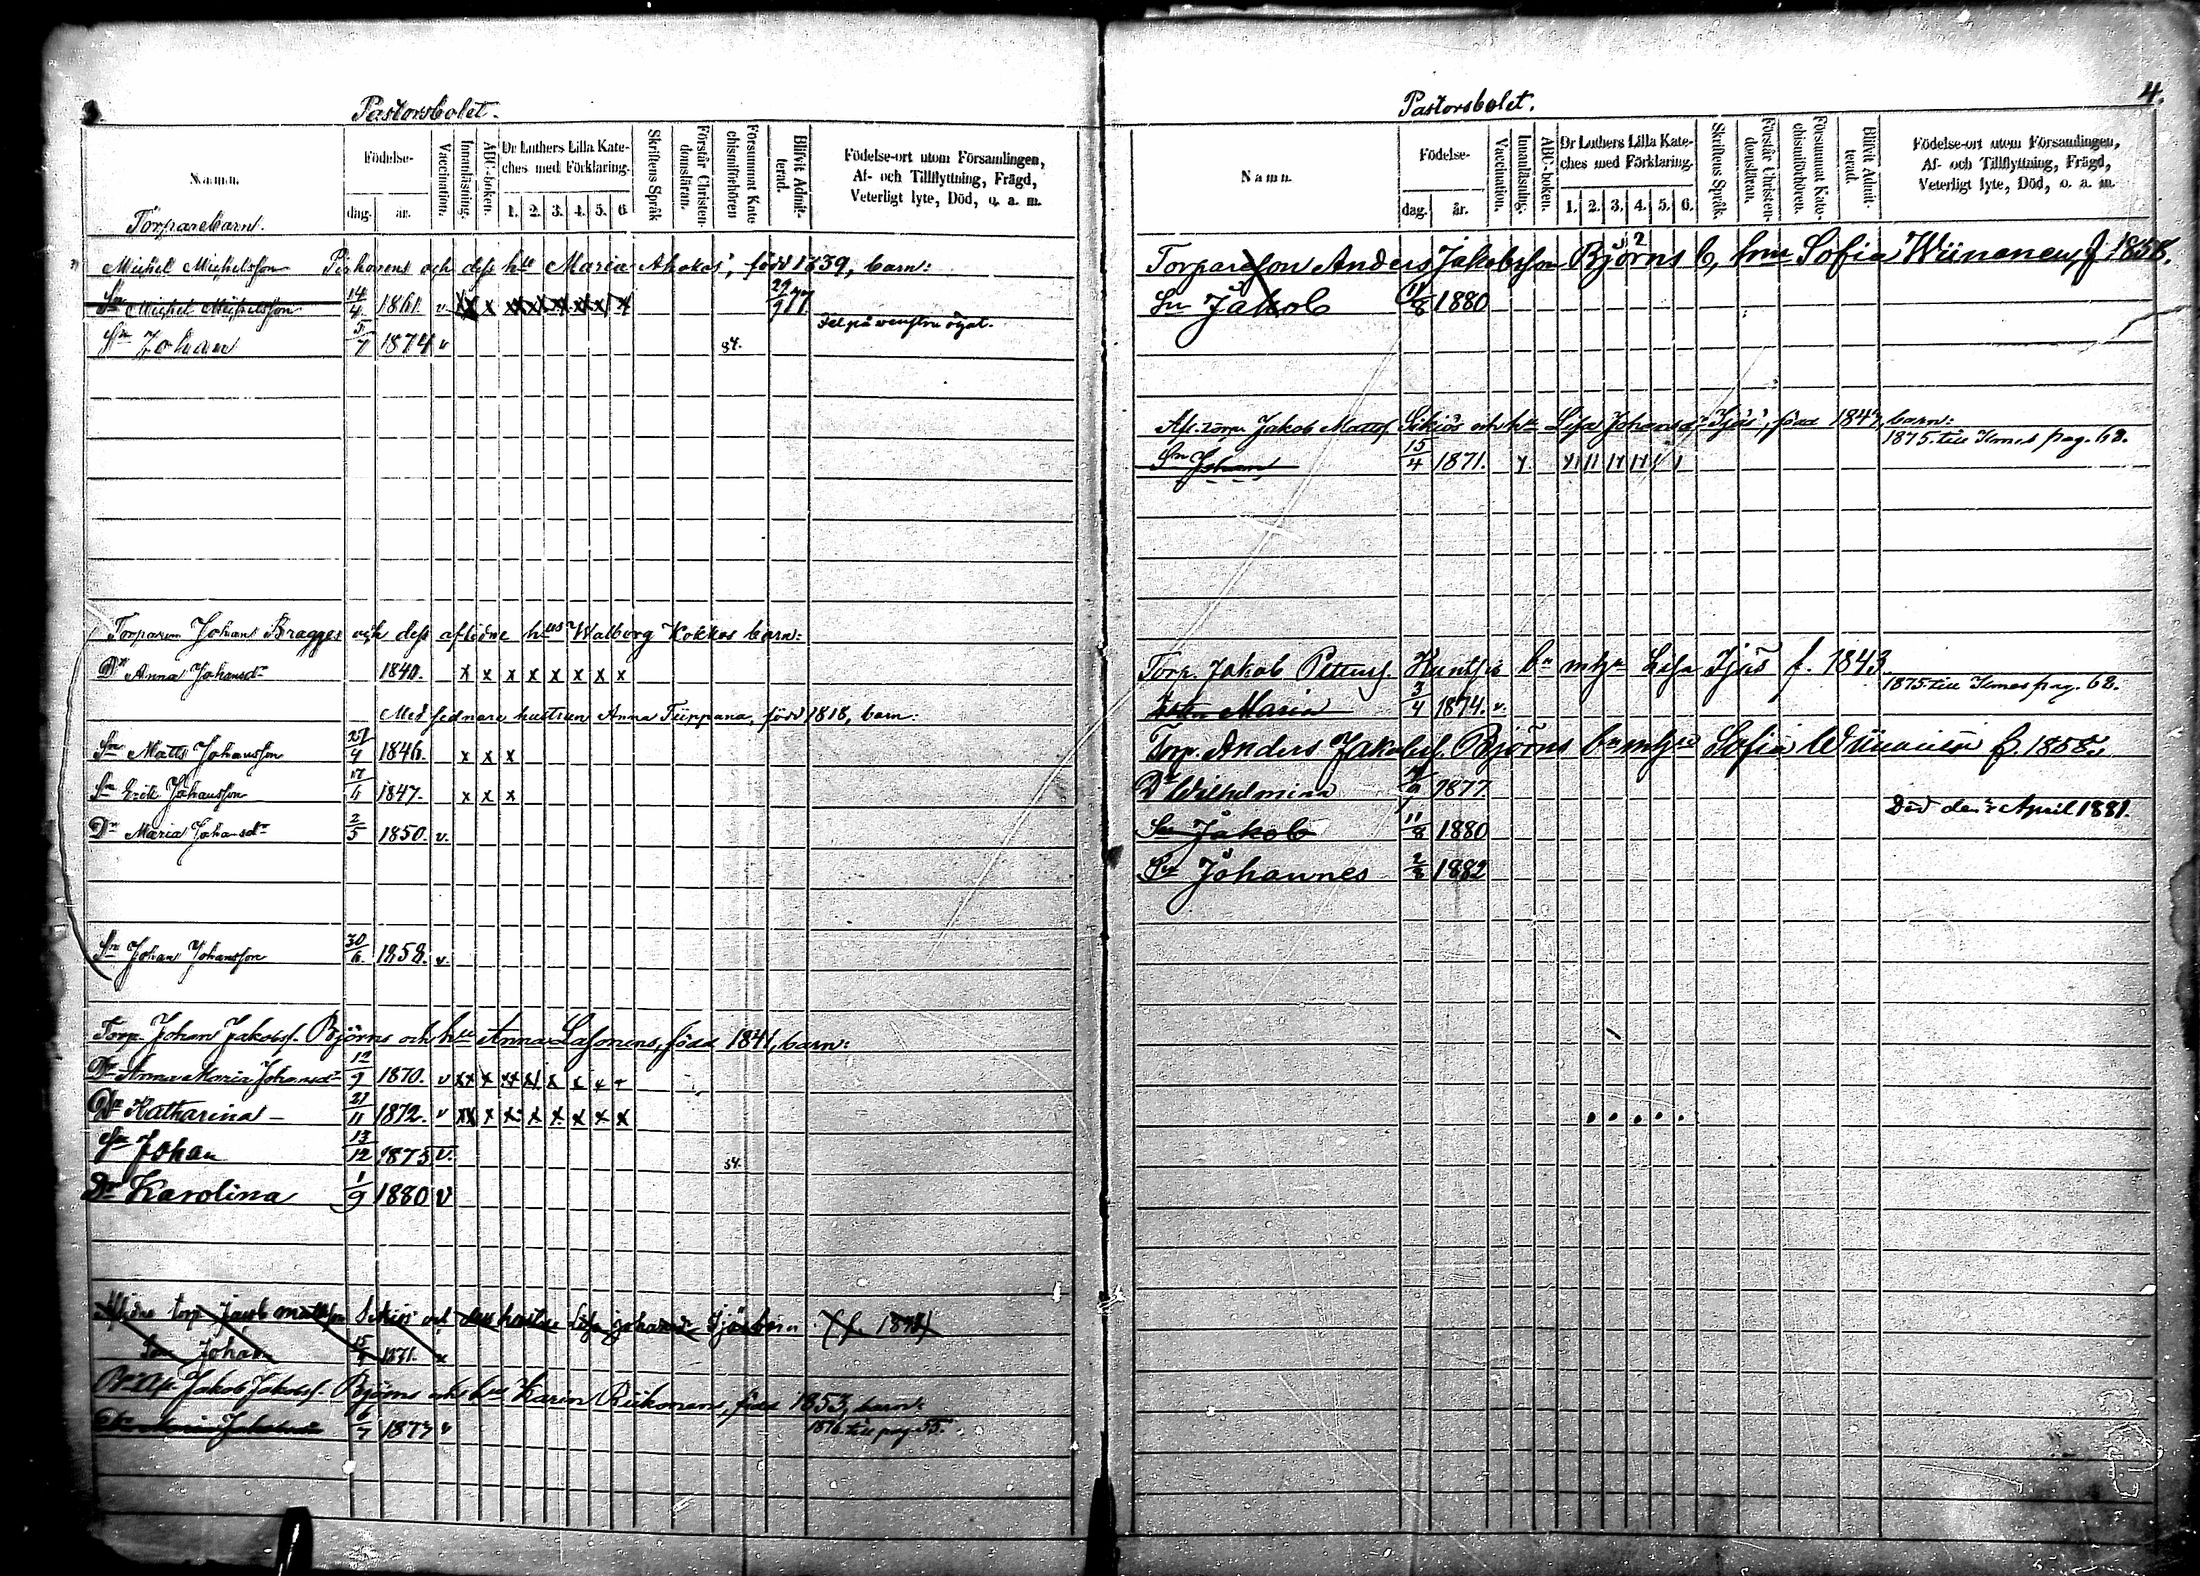 3.
Pastorsbolet.
Namn.
Födelse-
dag. år.
Vaccination.
Innanläsning.
ABC-boken.
Dr Luthers Lilla Kate-
ches med Förklaring.
1. 2. 3. 4. 5. 6.
Skriftens Språk
Förstår Christen-
domsläran.
Försummat Kate
chismiförhören
Blifvit Admit-
terad.
Födelse-ort utom Församlingen,
Af- och Tillflyttning, Frägd,
Veterligt lyte, Död, o. a. m.
Torparebarn.
Michel Michelsson Pirhonens och dess hu Maria Ahokas, född 1839, barn:
Sn Michel Michelsson 14/4 1861. v x x x x x x x x 29/9 77
Sn Johan 5/7 1874 v 84. Fel på wenstra ögat.
Torparen Johans Bragges och dess aflidne hus Walborg Kokkos barn:
Dr Anna Johansdr 1840. x x x x x x x x
Med sednare hustrun Anna Tiippana, född 1818, barn:
Sn Matts Johansson 27/4 1846. x x x
Sn Erik Johansson 17/11 1847. x x x
Dr Maria Johansdr 2/5 1850. v.
Sn Johan Johansson 30/6 1858. v.
Torp. Johan Jakobss. Björns och hu Anna Lasonens, född 1841, barn:
Dr Anna Maria Johansdr 12/9 1870. v xx x xx x x x x x
Dr Katharina 21/11 1872. v xx x x x x x x x
Sn Johan 13/12 1875 v. 84.
Dr Karolina 1/9 1880 v
Aflidne torp. Jacob mattsson Sikiös och dess hustru Lisa johansdr Ijäs barn
Son Johan 15/4 1871. v
Jakob Jakobss. Björns och hus Karin Riikonens, född 1853, barn:
Dr Maria Jakobsdr 6/7 1873 v 1876 till pag. 55.
4.
Pastorsbolet.
Namn.
Födelse-
dag. år.
Vaccination.
Innanläsning.
ABC-boken.
Dr Luthers Lilla Kate-
ches med Förklaring.
1. 2. 3. 4. 5. 6.
Skriftens Språk.
Förstår Christen-
domsläran.
Försummat Kate-
chismiförhören.
Blifvit Admit-
terad.
Födelse-ort utom Församlingen,
Af- och Tillflyttning, Frägd,
Veterligt lyte, Död, o. a. m.
Torpareson Anders Jakobsson Björns b, hnu Sofia Wiinanen, f. 1858.
Sn Jakob 11/8 1880
Afl. torp. Jakob Matts. Sikiös och hu Lisa Johansdr Ijäs, född 1843, barn:
Sn Johan 15/4 1871. 1875 till Ilmes pag. 62.
Torp. Jakob Petterss. Huntus bn m hn Lisa Ijäs f. 1843
Maria 3/4 1874. v. 1875 till Ilmes pag. 62.
Torp. Anders Jakobss. Björns bn m hn Sofia Wiinanen f. 1858.
Dr Wilhelmina 1877.
Sn Jakob 11/8 1880 Död den April 1881.
Sn Johannes 2/8 1882